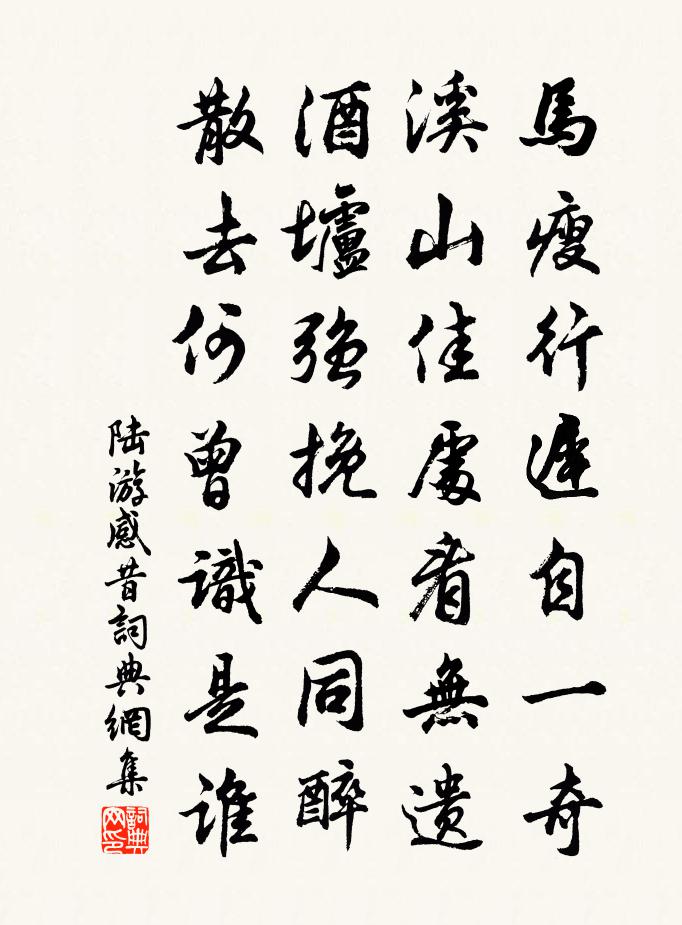 馬瘦行遲自一奇
溪山佳處看無遺
酒壚強挽人同醉
散去何曾識是誰
陆游感昔詞典網集
詞典网印